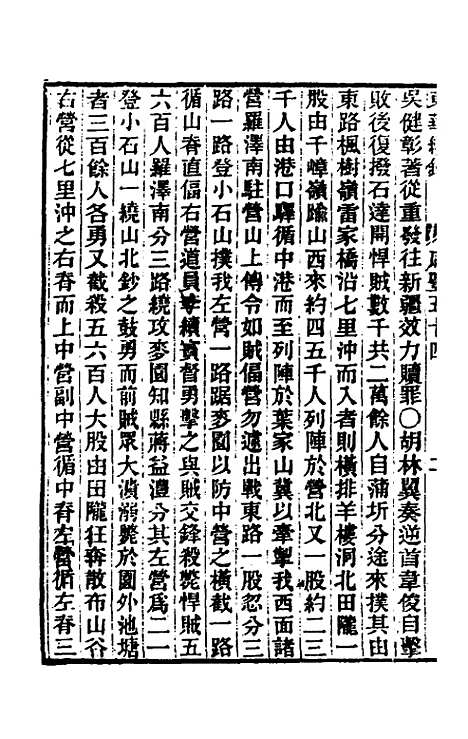 吳健彰著從重發往新疆效力贖罪○胡林翼奏逆首韋俊自擊
敗後復撥石達開悍賊數千共二萬餘人自蒲圻分途來撲其由
東路楓樹嶺雷家橋沿七里沖而入者則橫排羊樓洞北田隴一
股由千嶂嶺踰山西來約四五千人列陣於營北又一股約二三
千人由港口驛循中港而至列陣於葉家山冀以牽掣我西面諸
營羅澤南駐營山上傳令如賊偪營勿遽出戰東路一股忽分三
路一路登小石山撲我左營一路踞麥園以防中營之橫截一路
循山脊直偪右營道員李續賓督勇擊之與賊交鋒殺斃悍賊五
六百人羅澤南分三路繞攻麥園知縣蔣益澧分其左營爲二一
登小石山一繞山北鈔之鼓勇而前賊眾大潰溺斃於園外池塘
者三百餘人各勇又截殺五六百人大股由田隴狂奔散布山谷
右營從七里沖之右脊而上中營副中營循中脊左營循左脊三